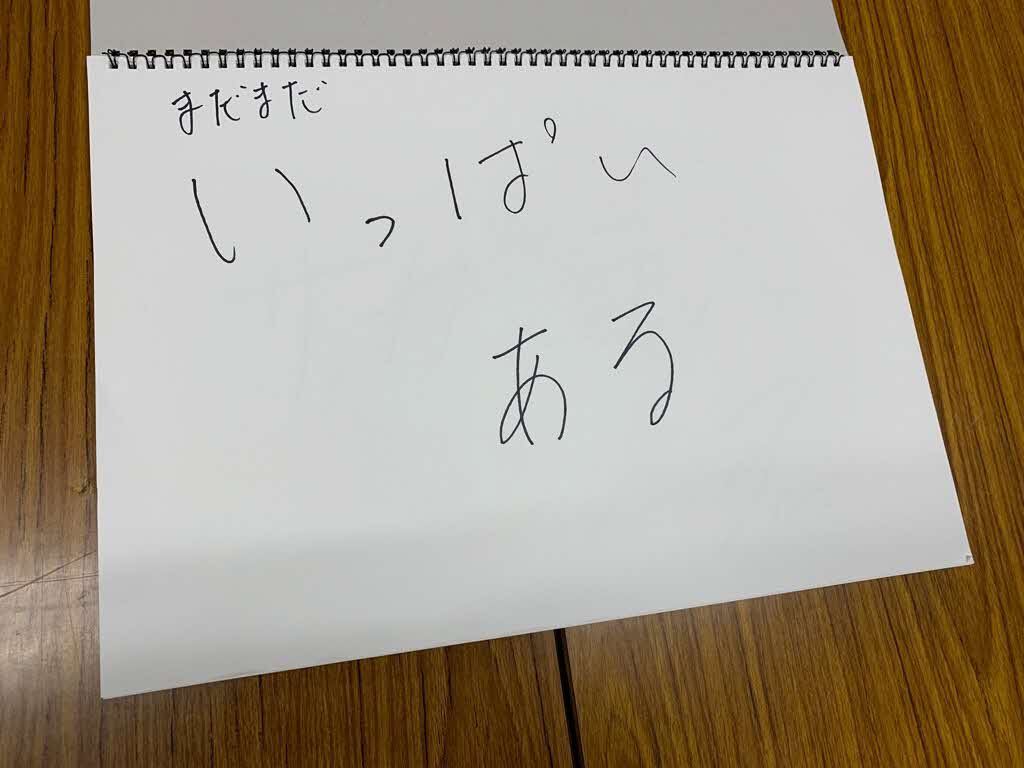 まだまだ
いっぱい
ある